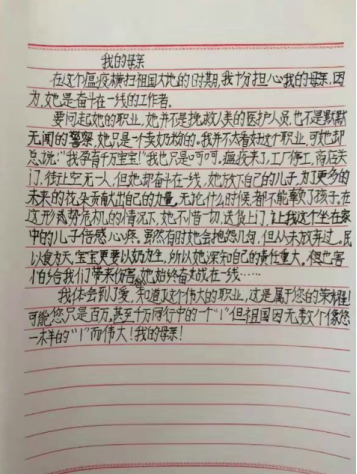 我的母亲
在这个瘟疫横扫祖国大地的时期,我十分担心我的母亲.因
为,她是奋斗在一线的工作者。
要问起她的职业,她并不是挽救人类的医护人员,也不是默默
无闻的警察,她只是一个卖奶粉的。我并不太看好这个职业,可她却
总说:"我孕育千万宝宝!"我也只是呵呵。瘟疫来了,工厂停工,商店关
门,街上空无一人,但她却奋斗在一线,她放下自己的儿子,为了更多的
未来的花朵贡献出自己的力量。无论什么时候,都不能饿了孩子,在
这形式势危机的情况下,她不惜一切,送货上门,让我这个坐在家
中的儿子倍感心疼。虽然有时她会抱怨几句,但从未放弃过。民
以食为天,宝宝更要以奶为生,所以她深知自己的责任重大。但也害
怕给我们带来伤害,她始终奋战在一线……
我体会到了爱,知道了这个伟大的职业,这是属于您的荣耀!
可能您只是百万,甚至千万同行中的一个"1"但祖国因无数个像您
一样的"1"而伟大!我的母亲!